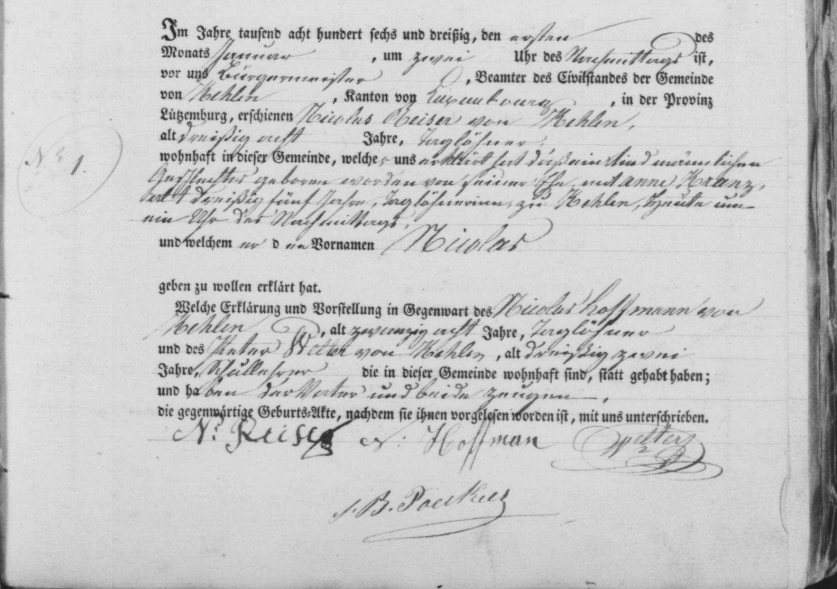 Im Jahre tausend acht hundert sechs und dreißig, den ersten des
Monats Januar, um zwei Uhr des Nachmittags ist,
vor uns Bürgermeister, Beamter des Civilstandes der Gemeinde
von Kehlen, Kanton von Luxembourg, in der Provinz
Lützemburg, erschienen Nicolas Reiser von Kehlen,
alt dreißig acht Jahre, Taglöhner,
N.º 1.
wohnhaft in dieser Gemeinde, welcher uns erklärt hat daß ein Kind männlichen
Geschlechtes geboren worden von seiner Ehe mit Anne Kranz,
alt dreißig fünf Jahre, Taglöhnerinn, zu Kehlen, heute um
ein Uhr des Nachmittags,
und welchem er den Vornamen Nicolas
geben zu wollen erklärt hat.
Welche Erklärung und Vorstellung in Gegenwart des Nicolas Hoffmann von
Kehlen, alt zwanzig acht Jahre, Taglöhner
und des Peter Welter von Kehlen, alt dreißig zwei
Jahre, Schullehrer die in dieser Gemeinde wohnhaft sind, statt gehabt haben;
und haben der Vater und beide Zeugen,
die gegenwärtige Geburts-Akte, nachdem sie ihnen vorgelesen worden ist, mit uns unterschrieben.
N: Reiser N: Hoffman Welter
J. B.